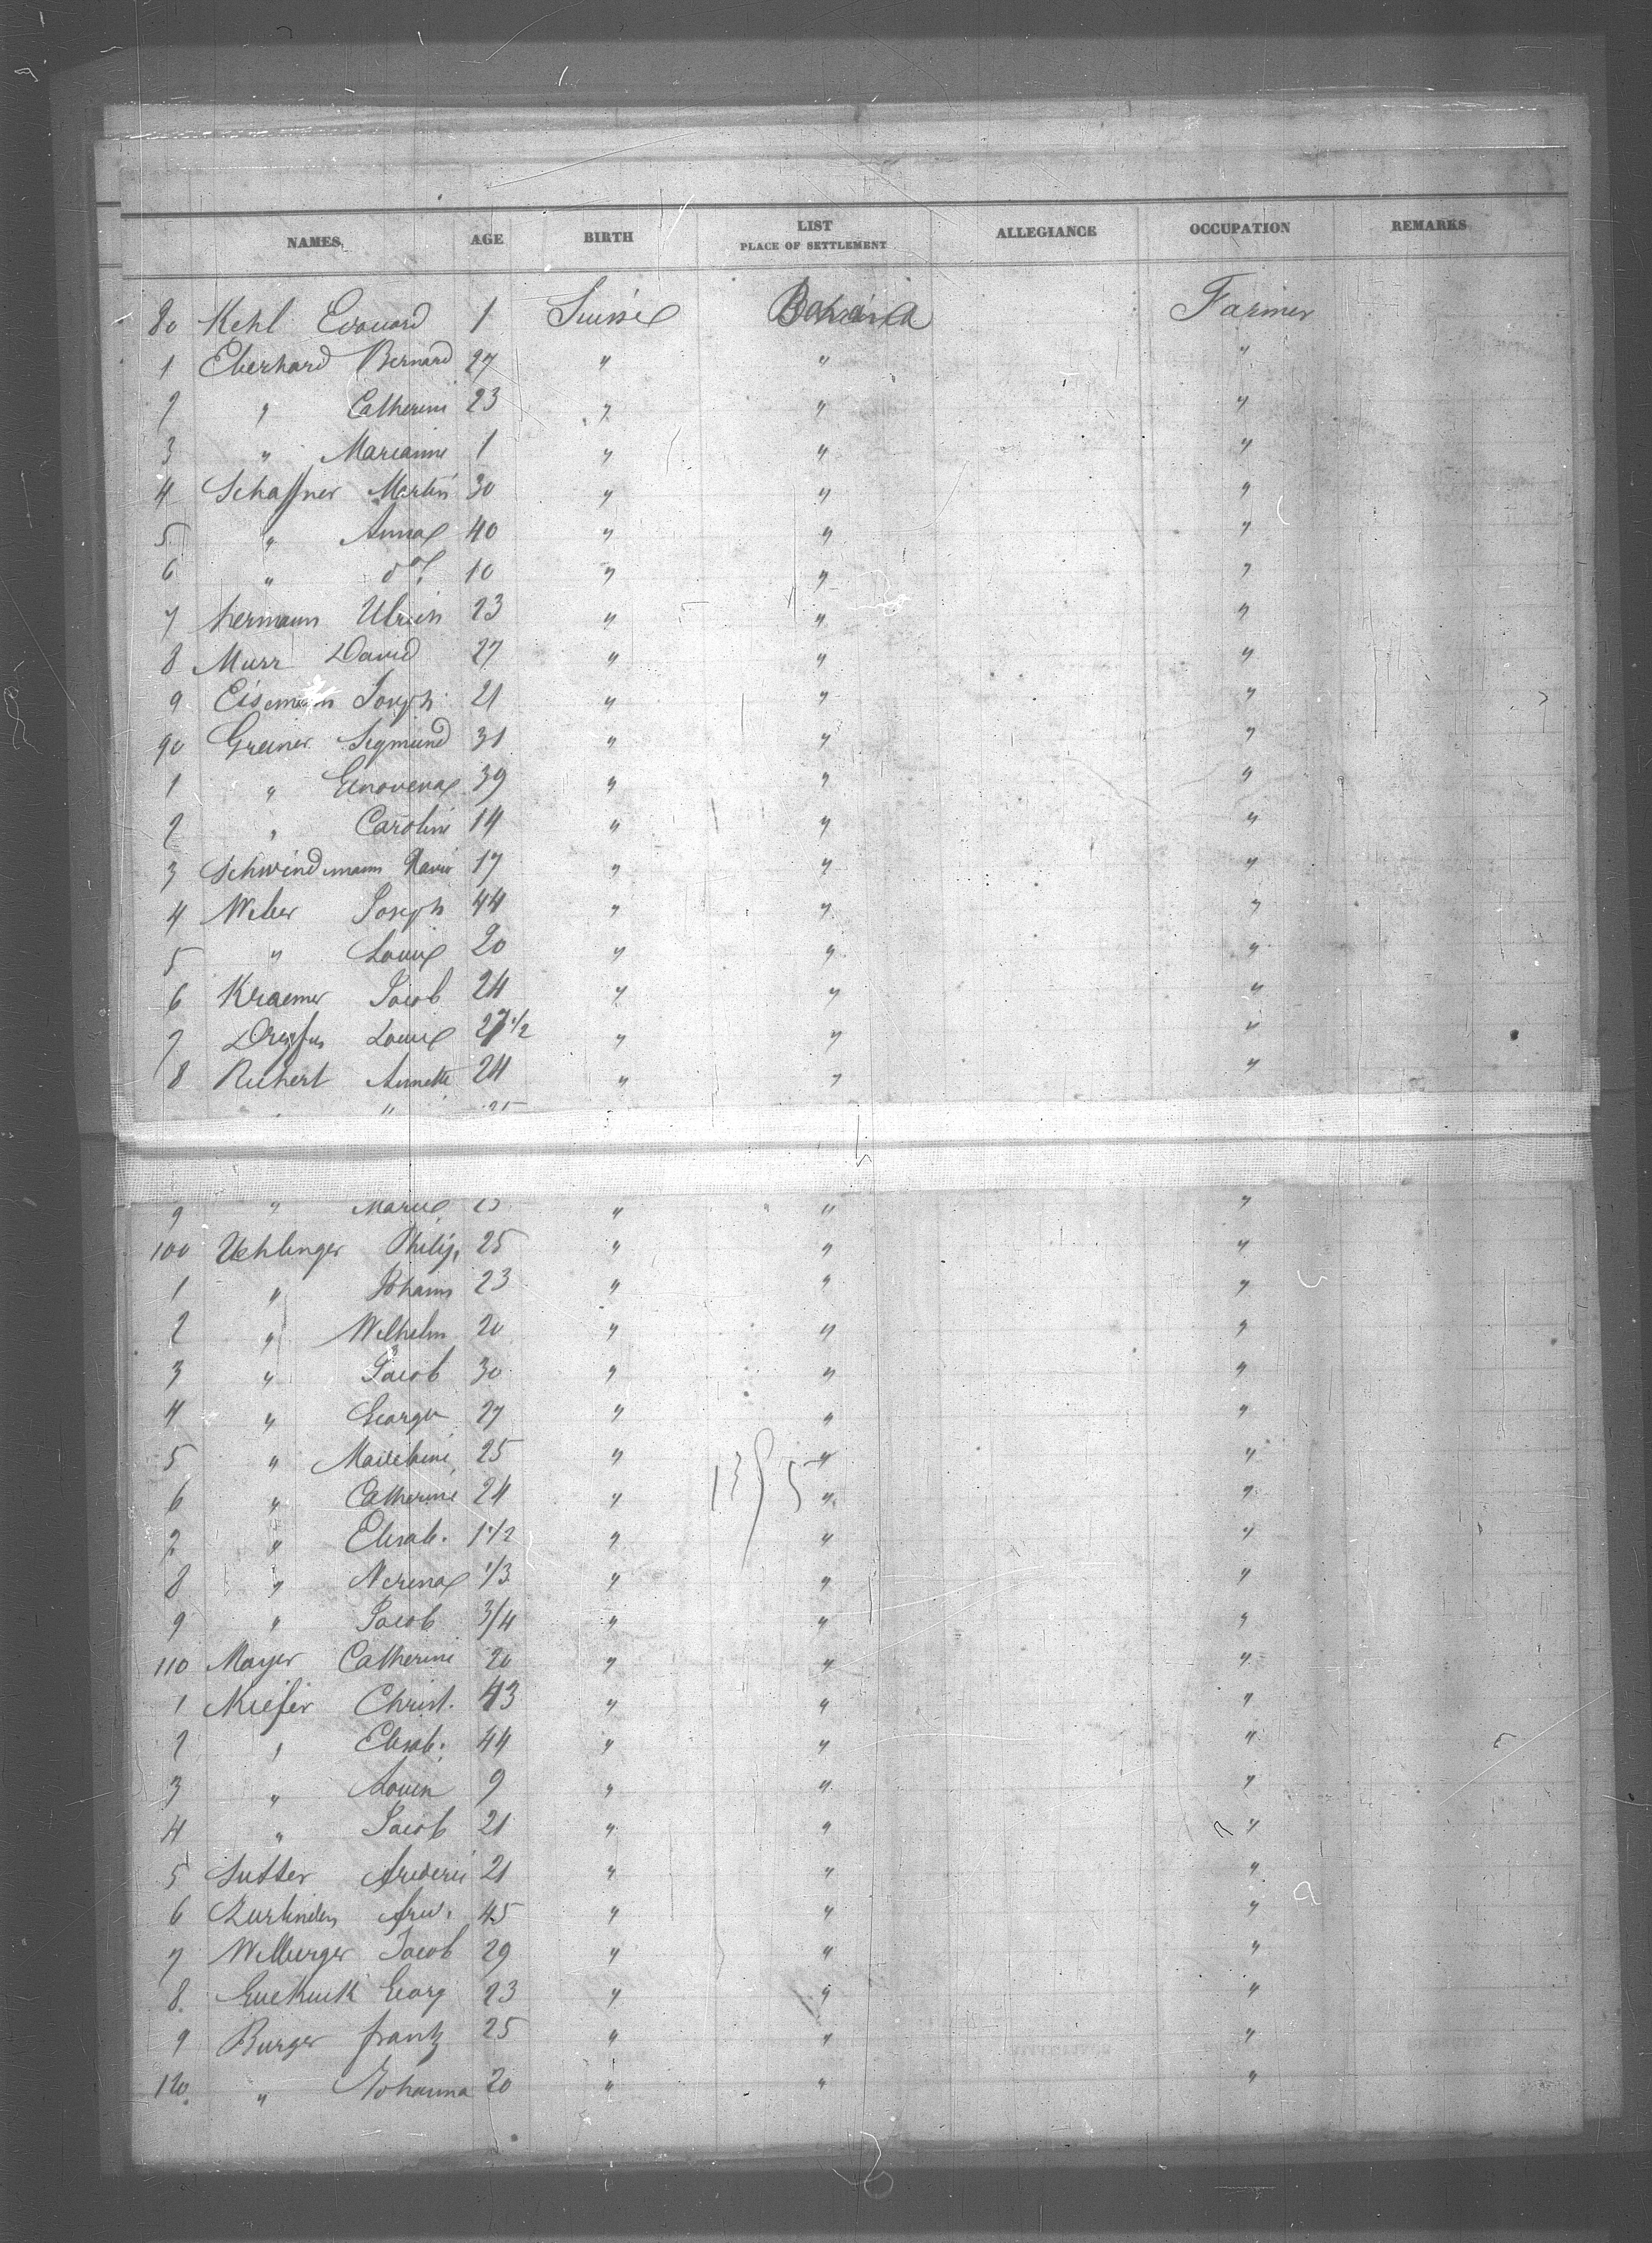 NAMES. AGE BIRTH LIST PLACE OF SETTLEMENT ALLEGIANCE OCCUPATION REMARKS
80 Kehl Edouard 1 Suisse Farmer
1 Eberhard Bernard 27 " " "
2 " Catherine 23 " " "
3 " Marianne 1 " " "
4 Schaffner Martin 30 " " "
5 " Anna 40 " " "
6 " do. 10 " " "
7 Hermann Ulrich 23 " " "
8 Murr David 27 " " "
9 Eisemann Joseph 21 " " "
90 Greiner Sigmund 31 " " "
1 " Genovena 39 " " "
2 " Caroline 14 " " "
3 Schwindemann Xavier 17 " " "
4 Weber Joseph 44 " " "
5 " Louise 20 " " "
6 Kraemer Jacob 24 " " "
7 Dreyfus Louise 1/2 " " "
8 Richert Annette 24 " " "
" 25
9 " Marie 25 " " "
100 Uehlinger Philip, 25 " " "
1 " Johann 23 " " "
2 " Wilhelm 20 " " "
3 " Jacob 30 " " "
4 " George 27 " " "
5 " 25 " " "
6 " Catherine 24 " " "
7 " Elisab. 1 1/2 " " "
8 " Verena 1/3 " " "
9 " Jacob 3/4 " " "
110 Mayer Catherine 20 " " "
1 Kiefer Christ. 43 " " "
2 " Elisab. 44 " " "
3 " Louise 9 " " "
4 " Jacob 21 " " "
5 Sutter Frederic 21 " " "
6 Zurlinden Fred. 45 " " "
7 Willburger Jacob 29 " " "
8 Georg 23 " " "
9 Burger Frantz 25 " " "
120 " Johanna 20 " " "